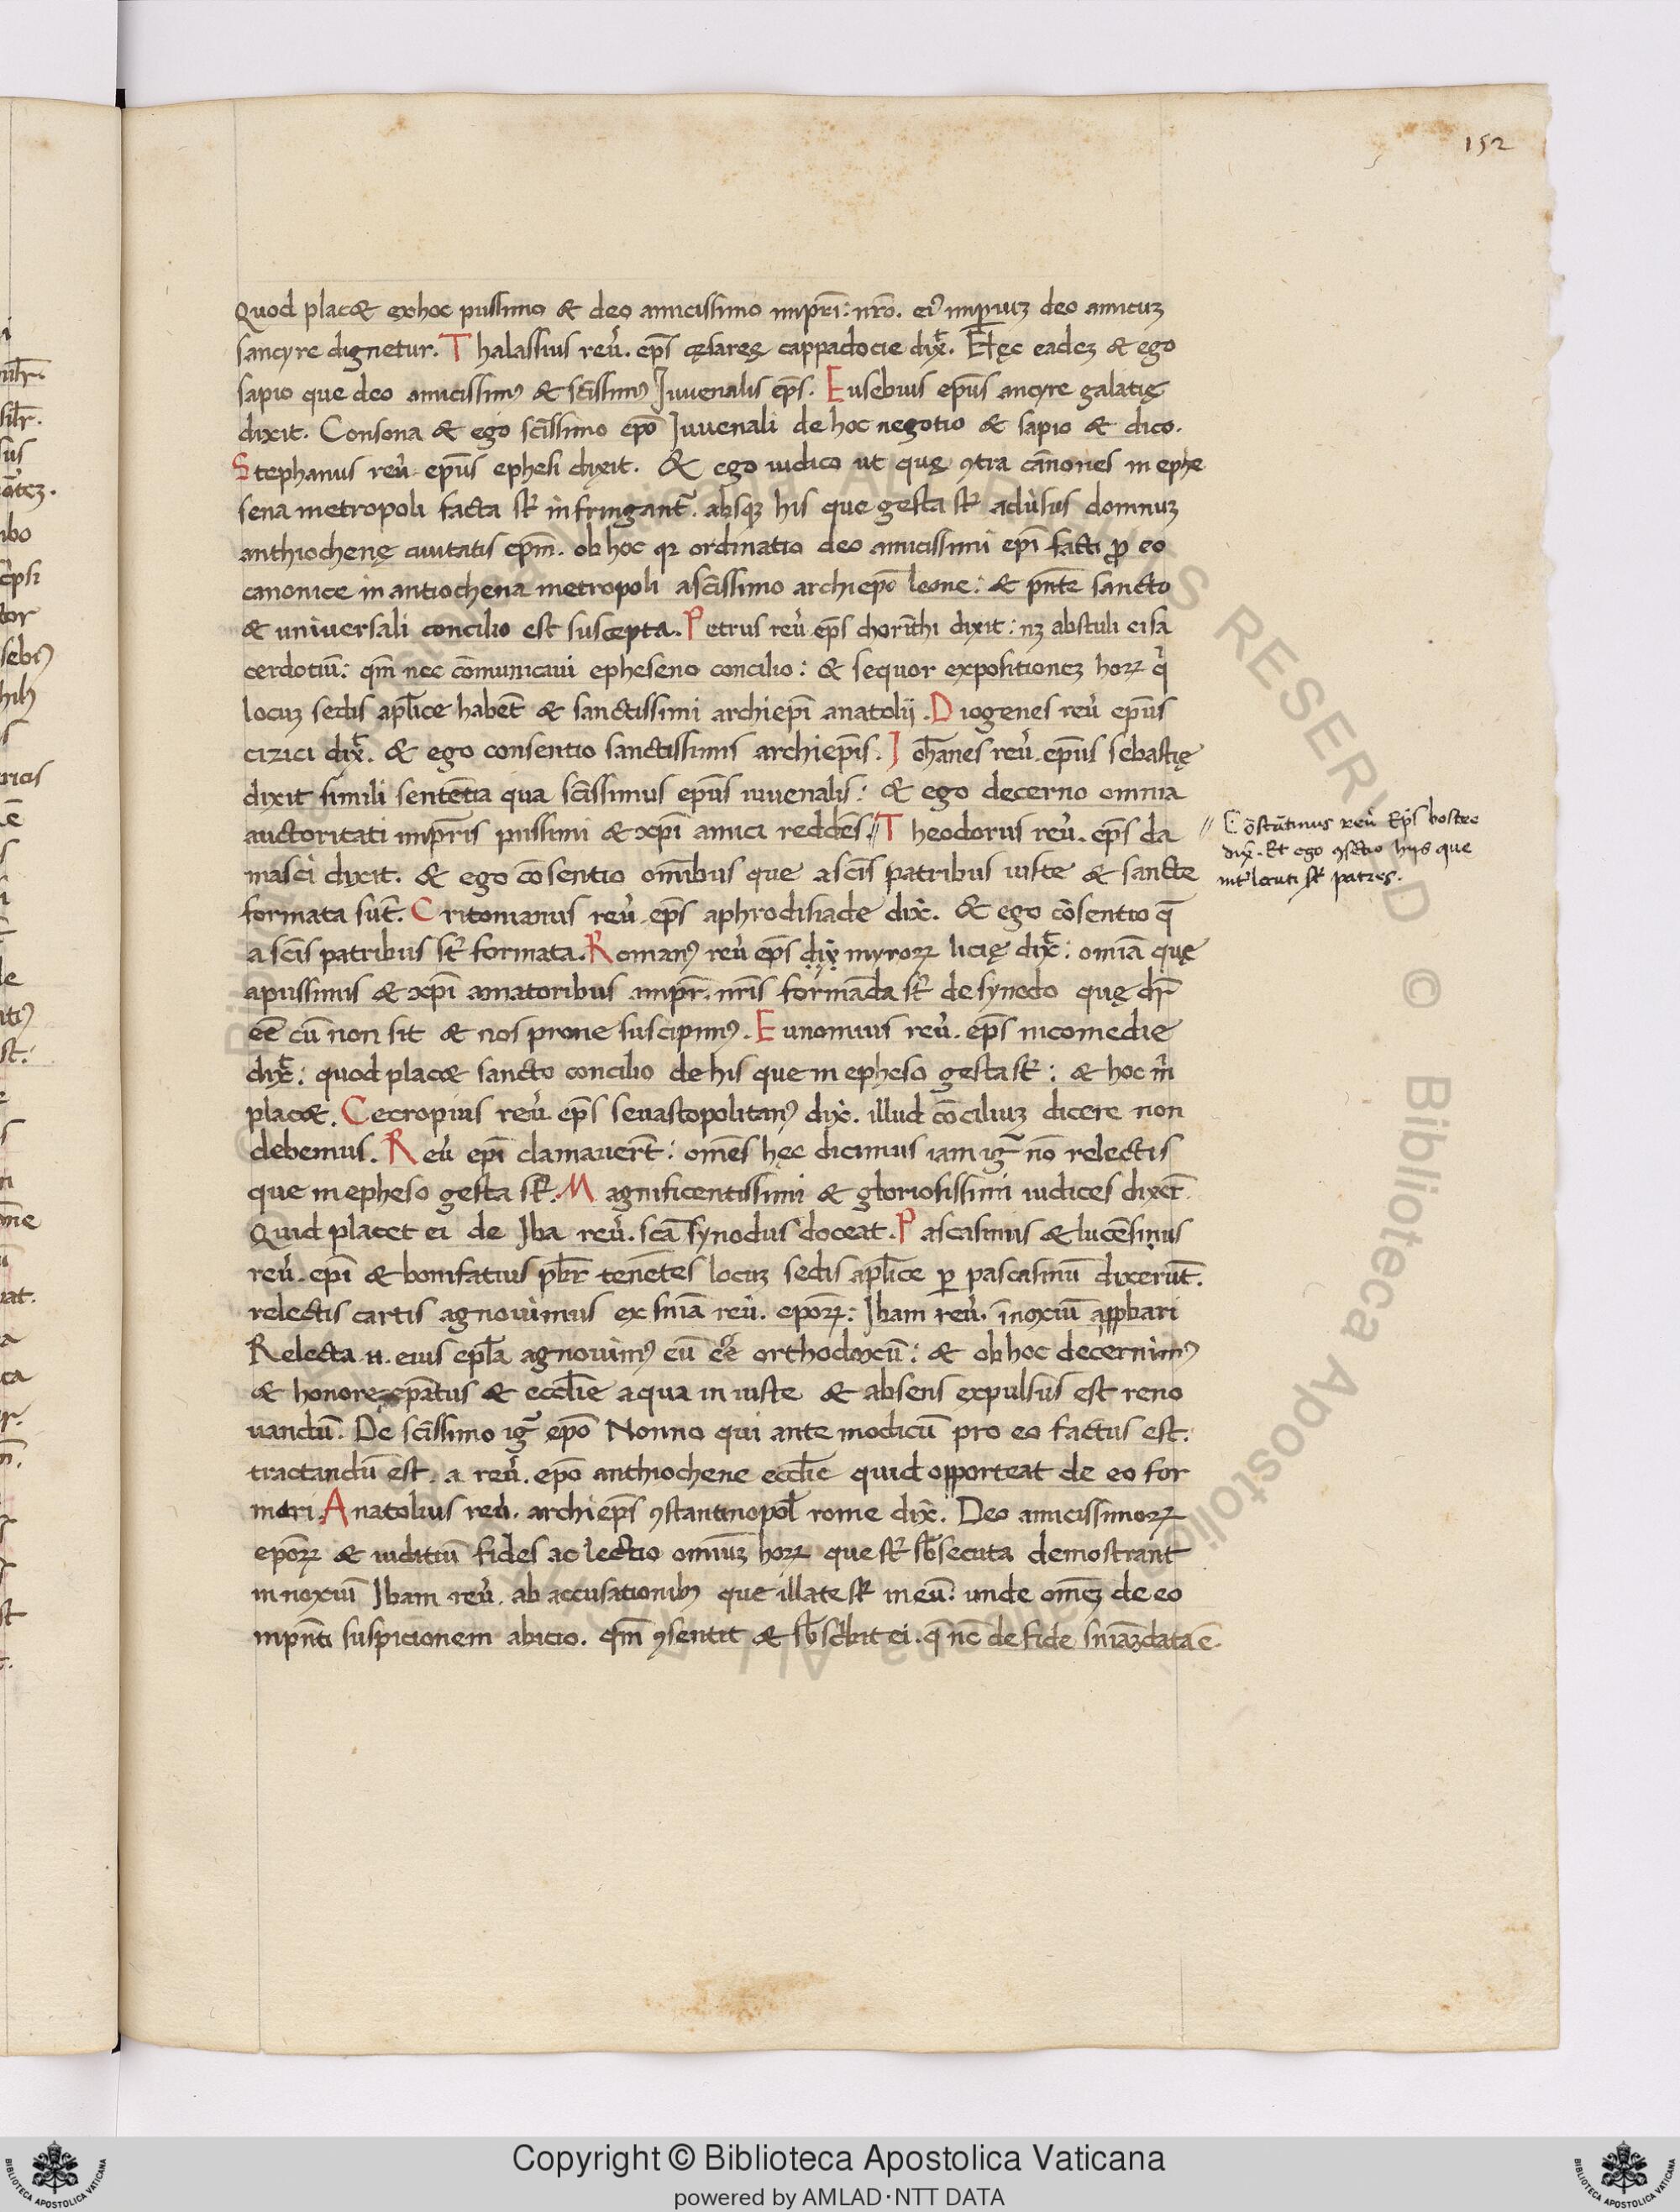 152
Quod plac& ex hoc piissimo & deo amicissimo imp̄ri: nr̄o. eiꝰ imp̲iuꝫ deo amicuꝫ
sancyre dignetur. Thalassius reū. ep̄s cęsaręę cappadocie dix̄t. Hęc eadeꝫ & ego
sapio que deo amicissimꝰ & sc̄issimꝰ Juvenalis ep̄s. Eusebius ep̄us ancyre galatię
dixit. Consona & ego sc̄issimo ep̄o Juvenali de hoc negotio & sapio & dico.
Stephanus reū. ep̄us ephesi dixit. & ego iudico ut quę ꝯtra cānones in ephe
sena metropoli facta st̄ infringant᷑. absqꝫ his que gesta st̄ adūsus domnuꝫ
anthiochenę ciuitatis ep̄m. ob hoc qꝛ ordinatio deo amicissimi ep̄i facti ꝓ eo
canonice in antiochena metropoli a sc̄issimo archiep̄o leone: & p̄nte sancto
& universali concilio est suscepta. Petrus reū ep̄s chorīthi dixit: nꝫ abstuli ei sa
cerdotiū: qm̄ nec cōmunicaui epheseno concilio: & sequor expositioneꝫ hoꝝ q̄
locuꝫ sedis apl̄ice habēt & sanctissimi archiep̄i anatolij. Diogenes reū ep̄us
cizici dix̄t. & ego consentio sanctissimis archiep̄is. Joh̄anes reū. ep̄us sebastię
dixit simili sentētia qua sc̄issimus ep̄us iuvenalis: & ego decerno omnia
auctoritati imp̄ris piissimi & xp̄i amici reddēs.// Theodorus reū. ep̄s da
masci dixit. & ego cōsentio om̄ibus que a sc̄is patribus iuste & sancte
formata sūt. Critonianus reū. ep̄s aphrodisiade dix̄. & ego cōsentio q̄
a sc̄is patribus st̄ formata. Romanꝰ reū ep̄s dix̄ myroꝝ licię dix̄t: om̄ia quę
a piissimis & xp̄i amatoribus imp̄r. nr̄is formāda st̄ de synodo quę dr̄
ee̅ cū non sit & nos prone suscipimꝰ. Eunomius reū. ep̄s nicomedie
dix̄t: quod plac& sancto concilio de his que in epheso gesta st̄: & hoc m̄
plac&. Cecropius reū. ep̄s sevastopolitanꝰ dix̄. illud cōciliuꝫ dicere non
debemus. Reū ep̄i clamauert̄: om̄s hęc dicimus iam ig᷑ nō relectis
que in epheso gesta st̄. Magnificentissimi & gloriosissimi iudices dixer̄t
Quid placet ei de Iba reū. sc̄a synodus doceat. Pascasinus & lucēsinus
reū. ep̄i & bonifatius pb̄r tenētes locuꝫ sedis apl̄ice p̲ pascasinū dixerūt.
relectis cartis agnovimus ex sn̄ia reū. ep̄oꝝ: Ibam reū. inoxiū apꝓbari
Relecta .n. eius ep̄la agnouimꝰ eū ee̅ orthodoxū: & ob hoc decernimꝰ
& honore ep̄atus & eccl̄ie a qua in iuste & absens expulsus est reno
uandū. De sc̄issimo ig᷑ ep̄o Nonno qui ante modicū pro eo factus est.
tractandū est. a reū. ep̄o anthiochene eccl̄ie quid opporteat de eo for
mari. Anatolius reū. archiep̄s ꝯstantinopol̄ rome dix̄. Deo amicissimoꝝ
ep̄oꝝ & iuditiū fides ac lectio omniuꝫ hoꝝ que st̄ sb̄secuta demostrant
innoxiū Ibam reū. ab accusationibꝰ que illate st̄ in eū: unde om̄eꝫ de eo
inpn̄ti suspicionem abicio. qm̄ ꝯsentit & sb̄scbit ei. q̄ nc̄ de fide sn̄iaꝫ data ē.
// Cōstātinus reū Ep̄s bostre
dix̄. Et ego ꝯsētio hijs que
int̄locuti st̄ patres.
Copyright © Biblioteca Apostolica Vaticana
powered by AMLAD·NTT DATA